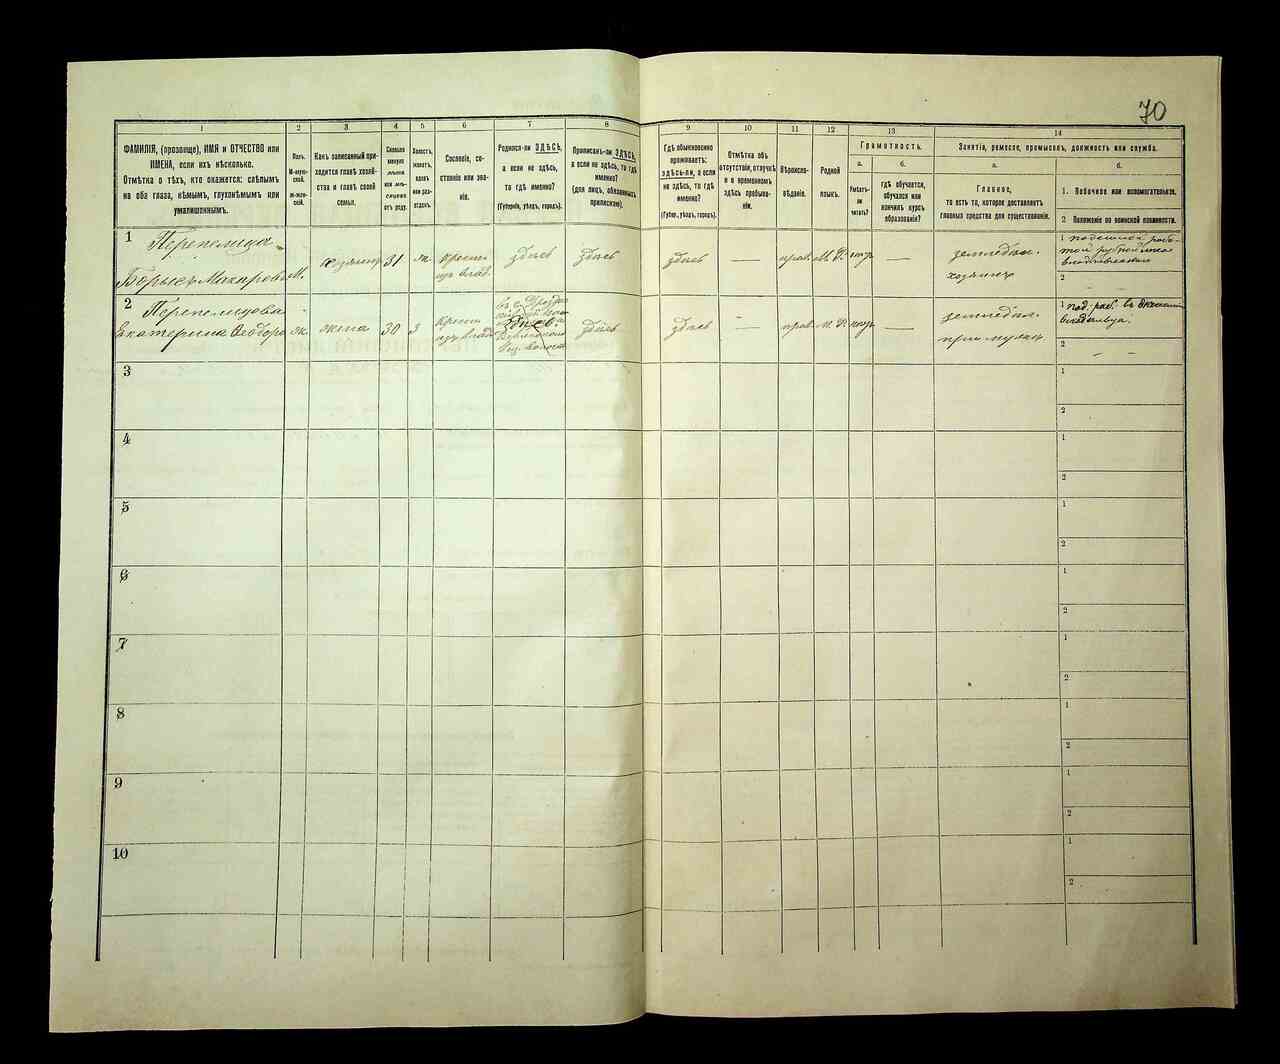 70
1 2 3 4 5 6 7 8 9 10 11 12 13 14
ФАМИЛІЯ, (прозвище), ИМЯ и ОТЧЕСТВО или
ИМЕНА, если ихъ нѣсколько.
Отмѣтка о тѣхъ, кто окажется: слѣпымъ
на оба глаза, нѣмымъ, глухонѣмымъ или
умалишеннымъ.
Полъ.
М-муж-
ской.
ж-жен-
скій.
Какъ записанный при-
ходится главѣ хозяй-
ства и главѣ своей
семьи.
Сколько
минуло
лѣтъ
или мѣ-
сяцевъ
отъ роду.
Холостъ,
женатъ,
вдовъ
или раз-
веденъ.
Сословіе, со-
стояніе или зва-
ніе.
Родился-ли ЗДѢСЬ,
а если не здѣсь,
то гдѣ именно?
(Губернія, уѣздъ, городъ).
Приписанъ-ли ЗДѢСЬ,
а если не здѣсь, то гдѣ
именно?
(для лицъ, обязанныхъ
припискою).
Гдѣ обыкновенно
проживаетъ:
ЗДѢСЬ-ЛИ, а если
не здѣсь, то гдѣ
именно?
(Губер., уѣздъ, городъ).
Отмѣтка объ
отсутствіи, отлучкѣ
и о временномъ
здѣсь пребыва-
ніи.
Вѣроиспо-
вѣданіе.
Родной
языкъ.
Грамотность.
а.
Умѣетъ-
ли
читать?
б.
гдѣ обучается,
обучался или
кончилъ курсъ
образованія?
Занятія, ремесло, промыселъ, должность или служба.
а.
Главное,
то есть то, которое доставляетъ
главныя средства для существованія.
б.
1. Побочное или вспомогательное.
2 Положеніе по воинской повинности.
1
Перепелица
Борисъ Макаровъ
М.
хозяинъ
31
ж.
крестьян.
изъ влад.
здѣсь
здѣсь
здѣсь
—
прав.
М. Р.
нѣтъ
—
земледѣл.
хозяинъ
1
2
2
Перепелицова
Екатерина Ѳедоро
ж.
жена
30
З
крест.
изъ влад.
здѣсь
здѣсь
здѣсь
—
прав.
М. Р.
нѣтъ
—
земледѣл.
при мужѣ
1 под. раб. въ
2
— —
3
1
2
4
1
2
5
1
2
6
1
2
7
1
2
8
1
2
9
1
2
10
1
2